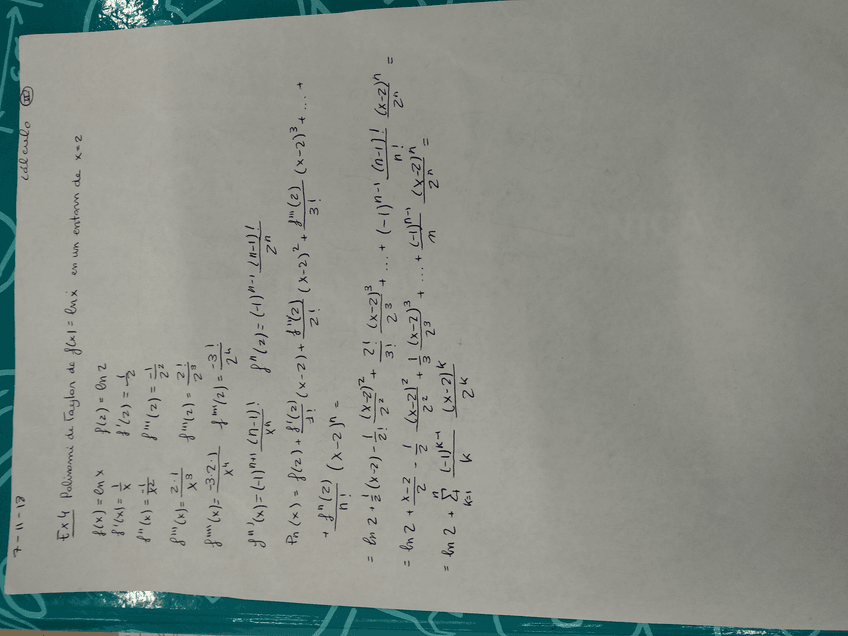 7-11-18 Cálculo III
Ex 4 Polinomi de Taylor de f(x) = ln x en un entorn de x=2
f(x) = ln x f(2) = ln 2
f'(x) = 1/x f'(2) = 1/2
f''(x) = -1/x² f'''(2) = -1/2²
f'''(x) = 2·1/x³ f'''(2) = 2!/2³
f''''(x) = -3·2·1/x⁴ f''''(2) = -3!/2⁴
fⁿ'(x) = (-1)ⁿ⁺¹ (n-1)!/xⁿ fⁿ(2) = (-1)ⁿ⁻¹ (n-1)!/2ⁿ
Pn(x) = f(2) + f'(2)/1! (x-2) + f''(2)/2! (x-2)² + f'''(2)/3! (x-2)³ + ... +
+ fⁿ(2)/n! (x-2)ⁿ =
= ln 2 + 1/2 (x-2) - 1/2! (x-2)²/2² + 2!/3! (x-2)³/2³ + ... + (-1)ⁿ⁻¹ (n-1)!/n! (x-2)ⁿ/2ⁿ =
= ln 2 + x-2/2 - 1/2 (x-2)²/2² + 1/3 (x-2)³/2³ + ... + (-1)ⁿ⁻¹/n (x-2)ⁿ/2ⁿ =
= ln 2 + Σ k=1 n (-1)ᵏ⁻¹/k (x-2)ᵏ/2ᵏ